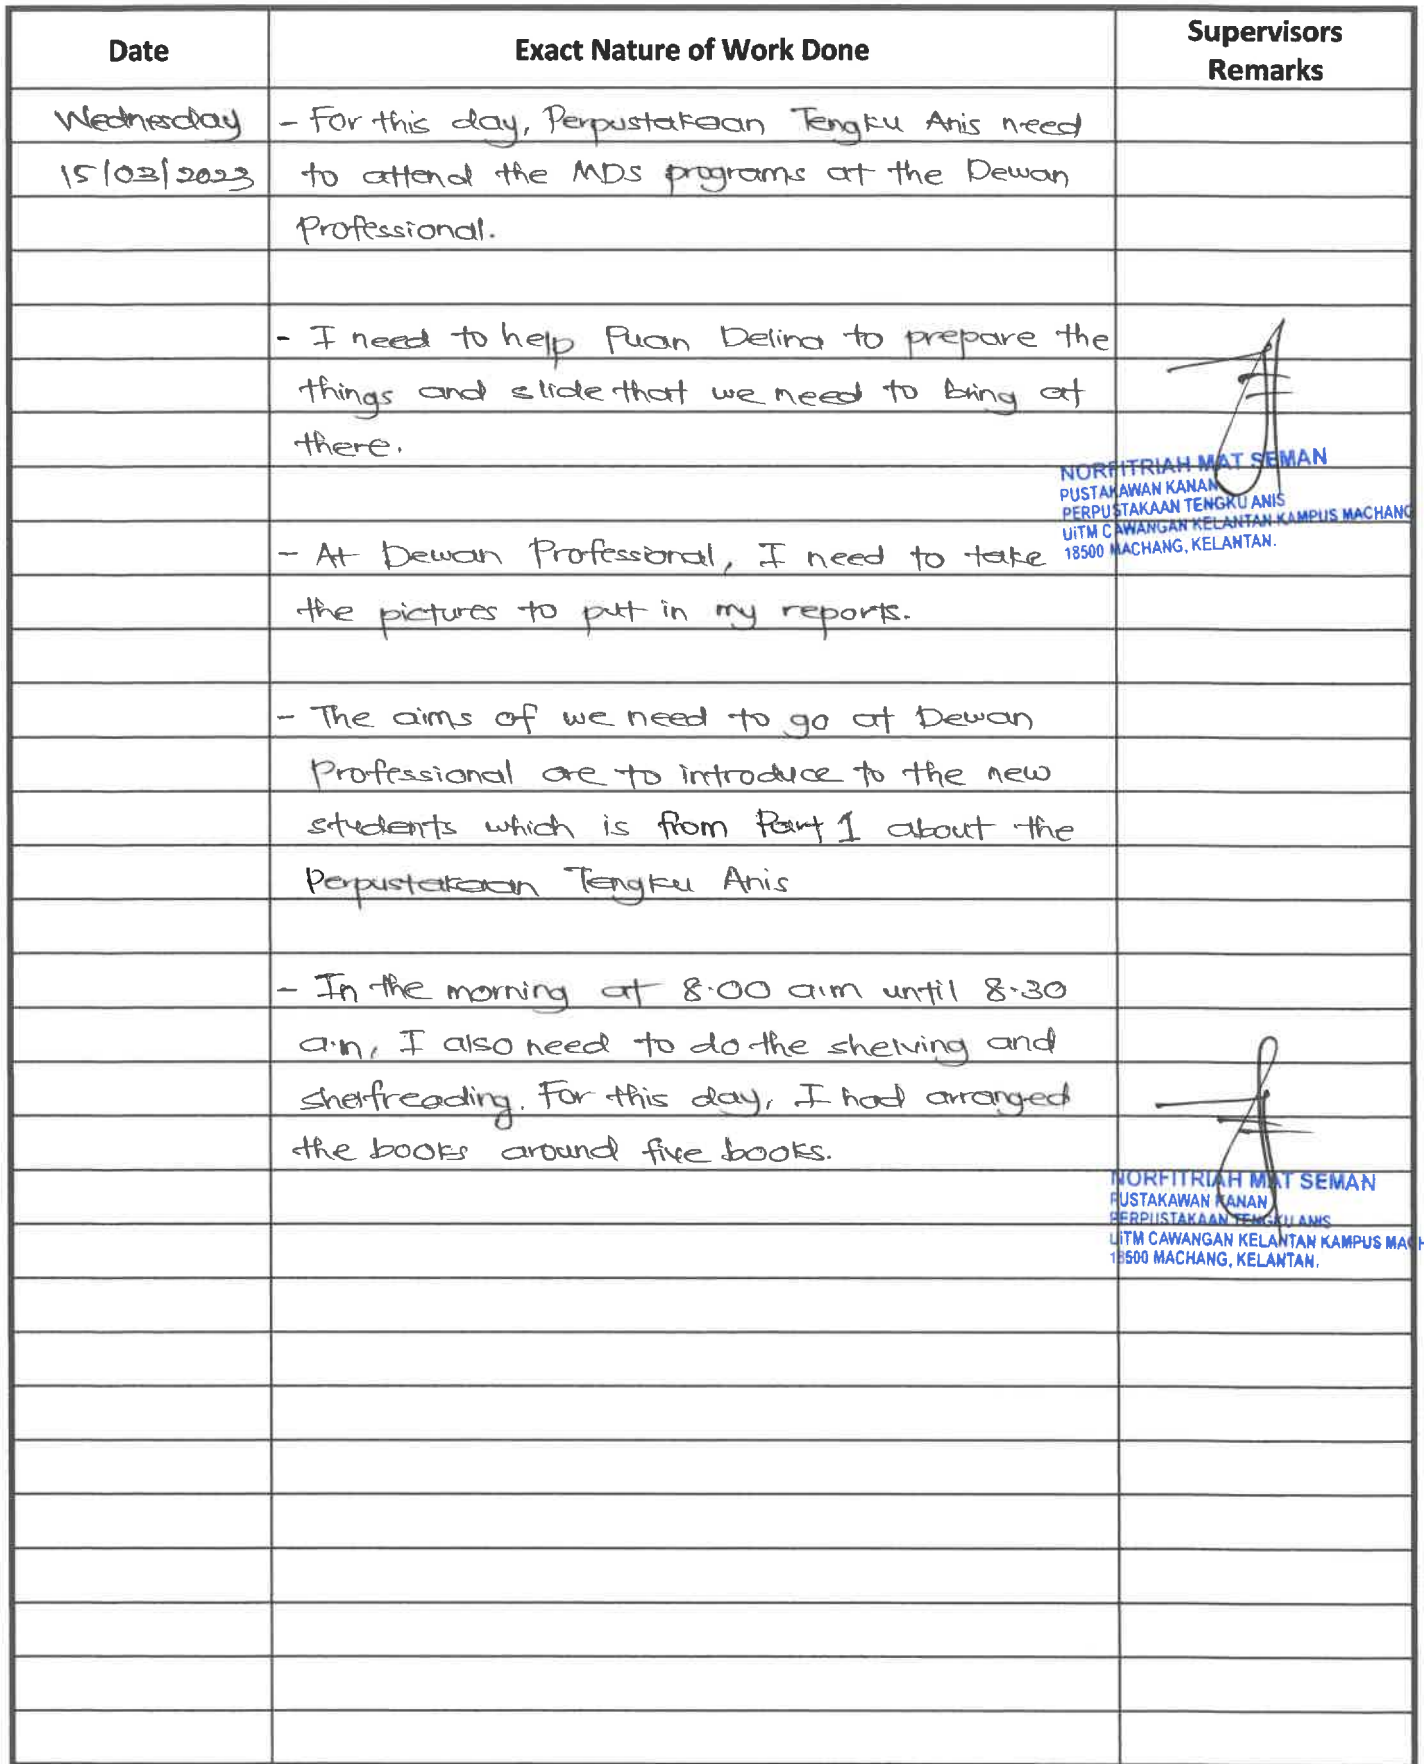 Date
Exact Nature of Work Done
Supervisors
Remarks
Wednesday
- For this day, Perpustakaan Tengku Anis need
15/03/2023
to attend the MDS programs at the Dewan
Professional.
- I need to help Puan Delina to prepare the
things and slide that we need to bring at
there.
NORFITRIAH MAT SEMAN
PUSTAKAWAN KANAN
PERPUSTAKAAN TENGKU ANIS
UiTM CAWANGAN KELANTAN KAMPUS MACHANG
18500 MACHANG, KELANTAN.
- At Dewan Professional, I need to take
the pictures to put in my reports.
- The aims of we need to go at Dewan
Professional are to introduce to the new
students which is from Part 1 about the
Perpustakaan Tengku Anis
- In the morning at 8.00 a.m until 8.30
a.n, I also need to do the shelving and
shelfreading. For this day, I had arranged
the books around five books.
NORFITRIAH MAT SEMAN
PUSTAKAWAN KANAN
PERPUSTAKAAN TENGKU ANIS
UiTM CAWANGAN KELANTAN KAMPUS MACH
18500 MACHANG, KELANTAN.